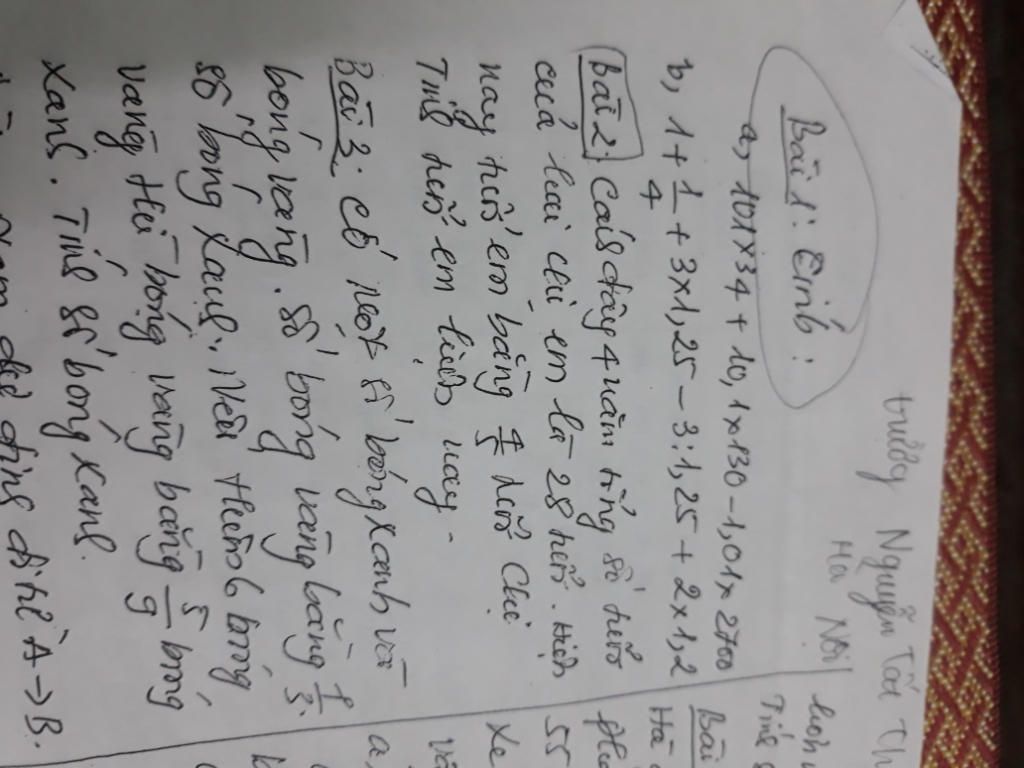 trường Nguyễn Tất Th
Hà Nội
Bài 1: Tính:
a, 101x34 + 10,1x130 - 1,01x 2700
b, 1 + 1/4 + 3x1,25 - 3:1,25 + 2x1,2
Bài 2: Cách đây 4 năm tổng số tuổi
của hai chị em là 28 tuổi. Hiện
nay tuổi em bằng 4/5 tuổi chị
Tính tuổi em hiện nay.
Bài 3: Có một số bóng xanh và
bóng vàng. Số bóng vàng bằng 1/3
số bóng xanh. Nếu thêm 6 bóng
vàng thì bóng vàng bằng 5/9 bóng
xanh. Tính số bóng xanh.
đi từ A → B.
Tính
Bài
Hà
55
xe
và
a,